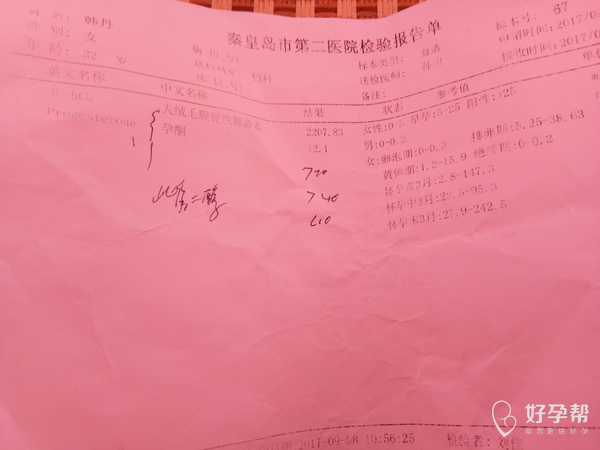 秦皇岛市第二医院检验报告单
标本号: 67
姓名: 韩丹
性别: 女
年龄: 32 岁
病历号:
床位号:
标本类型: 血清
送检医师:
备注:
申请时间: 2017/0
接收时间: 2017/0
英文名称 中文名称 结果 状态 参考值 单位
β-hCG 人绒毛膜促性腺激素 2207.83 女性:0-5 早孕:5-25 阳性:>25
Progesterone 孕酮 12.1 男:0-0.2
女:卵泡期:0-0.3 排卵期:5.25-38.63
黄体期:1.2-15.9 绝经期:0-0.2
怀孕前3月:2.8-147.3
怀孕中3月:22.5-95.3
怀孕末3月:27.9-242.5
>20
雌二醇 >40
2017-09-08 10:56:25 检验者: 刘佳
好孕帮